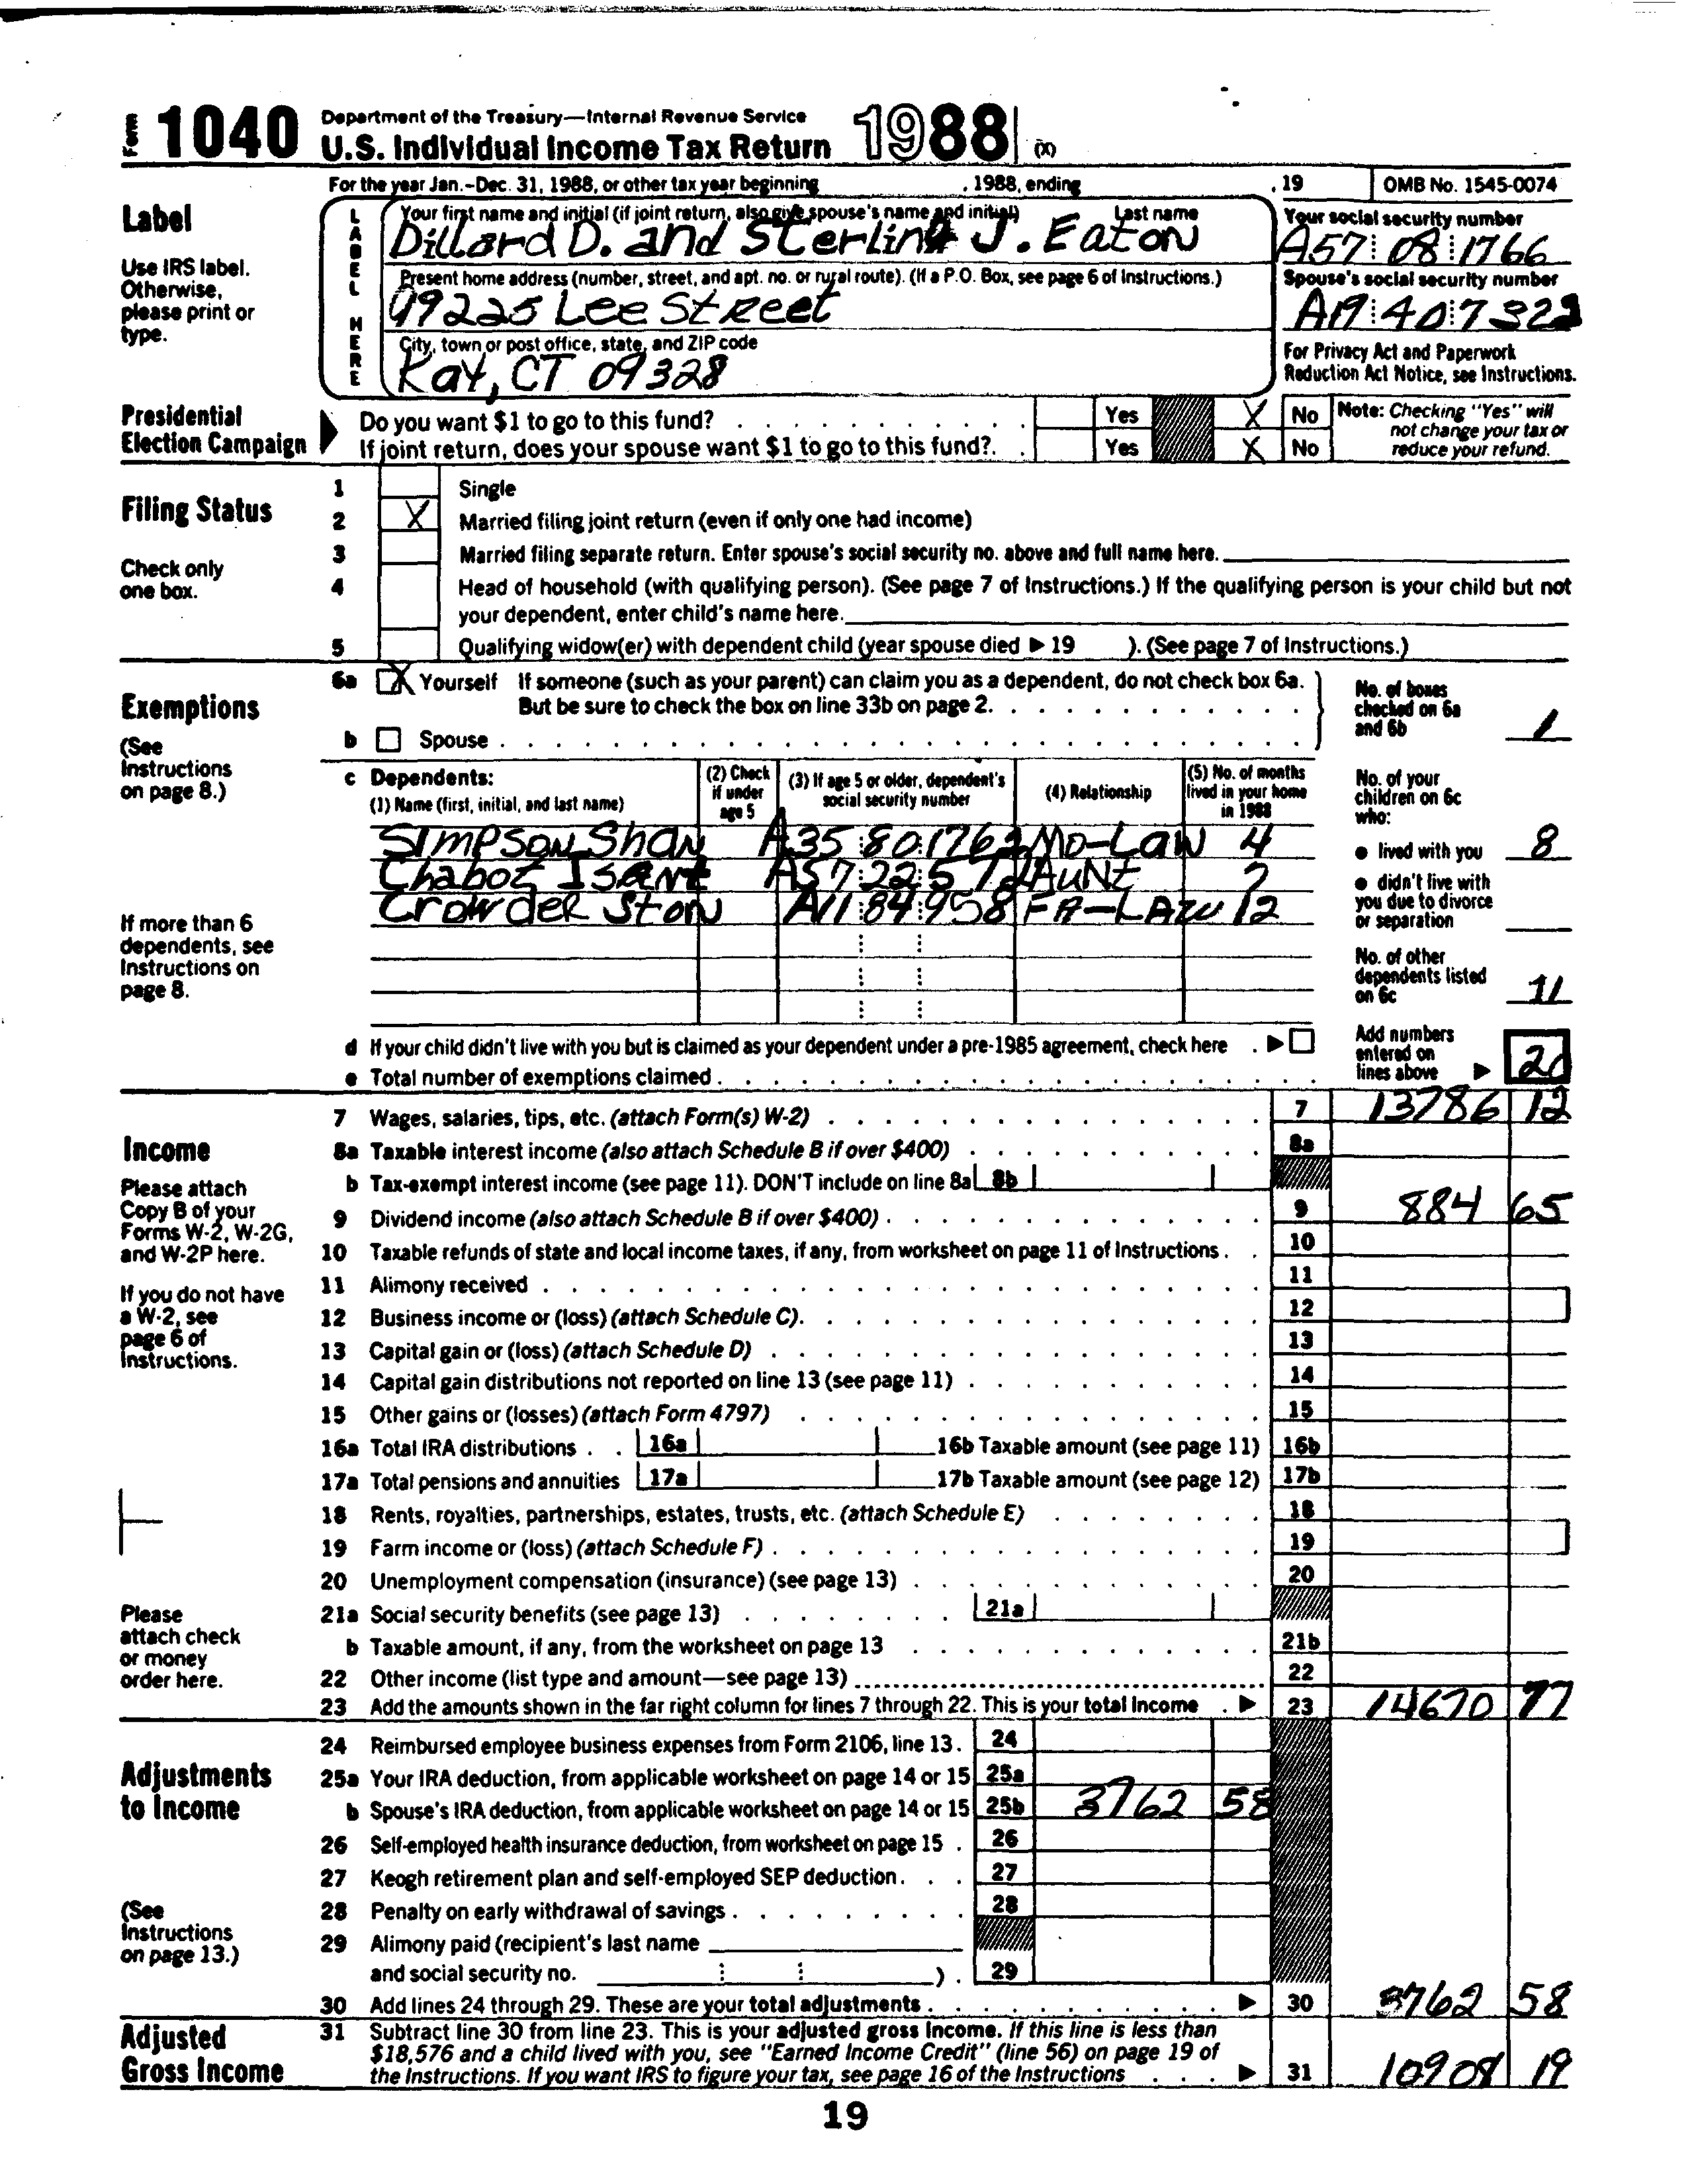 Form 1040 Department of the Treasury—Internal Revenue Service
U.S. Individual Income Tax Return 1988 (X)
For the year Jan.-Dec. 31, 1988, or other tax year beginning , 1988, ending , 19 OMB No. 1545-0074
Label
Use IRS label.
Otherwise,
please print or
type.
LABEL HERE
Your first name and initial (if joint return, also give spouse's name and initial) Last name
Dillard D. and Sterling J. Eaton
Your social security number
A57 08 1766
Present home address (number, street, and apt. no. or rural route). (If a P.O. Box, see page 6 of Instructions.)
99225 Lee Street
Spouse's social security number
City, town or post office, state, and ZIP code
Kay, CT 09328
For Privacy Act and Paperwork
Reduction Act Notice, see Instructions.
Presidential
Election Campaign
Do you want $1 to go to this fund? Yes X No
If joint return, does your spouse want $1 to go to this fund? Yes X No
Note: Checking "Yes" will
not change your tax or
reduce your refund.
Filing Status
Check only
one box.
1 Single
2 X Married filing joint return (even if only one had income)
3 Married filing separate return. Enter spouse's social security no. above and full name here.
4 Head of household (with qualifying person). (See page 7 of Instructions.) If the qualifying person is your child but not
your dependent, enter child's name here.
5 Qualifying widow(er) with dependent child (year spouse died ▶ 19 ). (See page 7 of Instructions.)
Exemptions
(See
Instructions
on page 8.)
6a X Yourself If someone (such as your parent) can claim you as a dependent, do not check box 6a.
But be sure to check the box on line 33b on page 2.
b Spouse
No. of boxes
checked on 6a
and 6b 1
c Dependents:
(1) Name (first, initial, and last name)
(2) Check
if under
age 5
(3) If age 5 or older, dependent's
social security number
(4) Relationship
(5) No. of months
lived in your home
in 1988
Simpson Shan A35 80 1762 Mo-Law 4
Chabot A57 22 Aunt
Crowder Ston A11 84 958 FA-LAW 12
If more than 6
dependents, see
Instructions on
page 8.
No. of your
children on 6c
who:
● lived with you 8
● didn't live with
you due to divorce
or separation
No. of other
dependents listed
on 6c 11
d If your child didn't live with you but is claimed as your dependent under a pre-1985 agreement, check here ▶
e Total number of exemptions claimed
Add numbers
entered on
lines above ▶ 20
Income
Please attach
Copy B of your
Forms W-2, W-2G,
and W-2P here.
If you do not have
a W-2, see
page 6 of
Instructions.
Please
attach check
or money
order here.
7 Wages, salaries, tips, etc. (attach Form(s) W-2) 7 13786 12
8a Taxable interest income (also attach Schedule B if over $400) 8a
b Tax-exempt interest income (see page 11). DON'T include on line 8a 8b
9 Dividend income (also attach Schedule B if over $400) 9 884 65
10 Taxable refunds of state and local income taxes, if any, from worksheet on page 11 of Instructions 10
11 Alimony received 11
12 Business income or (loss) (attach Schedule C) 12
13 Capital gain or (loss) (attach Schedule D) 13
14 Capital gain distributions not reported on line 13 (see page 11) 14
15 Other gains or (losses) (attach Form 4797) 15
16a Total IRA distributions 16a 16b Taxable amount (see page 11) 16b
17a Total pensions and annuities 17a 17b Taxable amount (see page 12) 17b
18 Rents, royalties, partnerships, estates, trusts, etc. (attach Schedule E) 18
19 Farm income or (loss) (attach Schedule F) 19
20 Unemployment compensation (insurance) (see page 13) 20
21a Social security benefits (see page 13) 21a
b Taxable amount, if any, from the worksheet on page 13 21b
22 Other income (list type and amount—see page 13) 22
23 Add the amounts shown in the far right column for lines 7 through 22. This is your total income ▶ 23 14670 77
Adjustments
to Income
(See
Instructions
on page 13.)
24 Reimbursed employee business expenses from Form 2106, line 13. 24
25a Your IRA deduction, from applicable worksheet on page 14 or 15 25a
b Spouse's IRA deduction, from applicable worksheet on page 14 or 15 25b 3762 58
26 Self-employed health insurance deduction, from worksheet on page 15 26
27 Keogh retirement plan and self-employed SEP deduction 27
28 Penalty on early withdrawal of savings 28
29 Alimony paid (recipient's last name
and social security no. ) 29
30 Add lines 24 through 29. These are your total adjustments ▶ 30 3762 58
Adjusted
Gross Income
31 Subtract line 30 from line 23. This is your adjusted gross income. If this line is less than
$18,576 and a child lived with you, see "Earned Income Credit" (line 56) on page 19 of
the Instructions. If you want IRS to figure your tax, see page 16 of the Instructions ▶ 31 10908 19
19